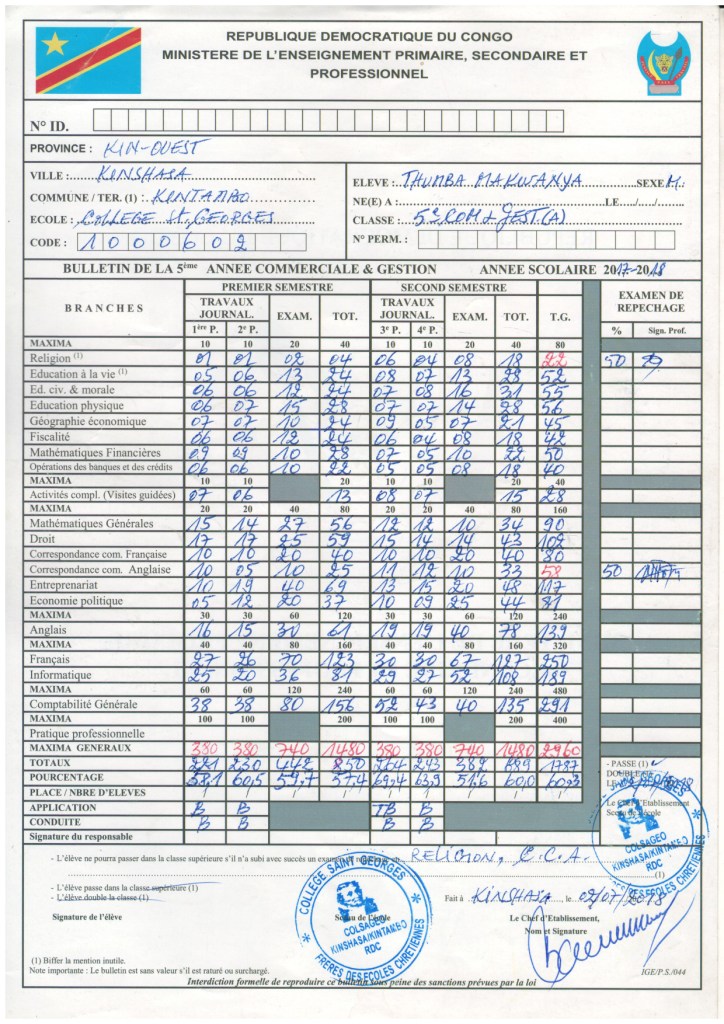 REPUBLIQUE DEMOCRATIQUE DU CONGO
MINISTERE DE L'ENSEIGNEMENT PRIMAIRE, SECONDAIRE ET
PROFESSIONNEL
N° ID.
PROVINCE : KIN-OUEST
VILLE : KINSHASA
COMMUNE / TER. (1) : KINTAMBO
ECOLE : COLLEGE St GEORGES
CODE : 1 0 0 0 6 0 2
ELEVE : THUMBA MAKWANYA SEXE M.
NE(E) A : LE / /
CLASSE : 5e COM & GEST (A)
N° PERM. :
BULLETIN DE LA 5ème ANNEE COMMERCIALE & GESTION ANNEE SCOLAIRE 2017-2018
BRANCHES PREMIER SEMESTRE SECOND SEMESTRE EXAMEN DE REPECHAGE
TRAVAUX JOURNAL. EXAM. TOT. TRAVAUX JOURNAL. EXAM. TOT. T.G.
1ère P. 2e P. 3e P. 4e P. % Sign. Prof.
MAXIMA 10 10 20 40 10 10 20 40 80
Religion (1) 01 01 02 04 06 04 08 18 22 50
Education à la vie (1) 05 06 13 24 08 07 13 28 52
Ed. civ. & morale 06 06 12 24 07 08 16 31 55
Education physique 06 07 15 28 07 07 14 28 56
Géographie économique 07 07 10 24 09 05 07 21 45
Fiscalité 06 06 12 24 06 04 08 18 42
Mathématiques Financières 09 09 10 28 07 05 10 22 50
Opérations des banques et des crédits 06 06 10 22 05 05 08 18 40
MAXIMA 10 10 20 10 10 20 40
Activités compl. (Visites guidées) 07 06 13 08 07 15 28
MAXIMA 20 20 40 80 20 20 40 80 160
Mathématiques Générales 15 14 27 56 12 12 10 34 90
Droit 17 17 25 59 15 14 14 43 102
Correspondance com. Française 10 10 20 40 10 10 20 40 80
Correspondance com. Anglaise 10 05 10 25 11 12 10 33 58 50
Entreprenariat 10 19 40 69 13 15 20 48 117
Economie politique 05 12 20 37 10 09 25 44 81
MAXIMA 30 30 60 120 30 30 60 120 240
Anglais 16 15 30 61 19 19 40 78 139
MAXIMA 40 40 80 160 40 40 80 160 320
Français 27 26 70 123 30 30 67 127 250
Informatique 25 20 36 81 29 27 52 108 189
MAXIMA 60 60 120 240 60 60 120 240 480
Comptabilité Générale 38 38 80 156 52 43 40 135 291
MAXIMA 100 100 200 100 100 200 400
Pratique professionnelle
MAXIMA GENERAUX 380 380 740 1480 380 380 740 1480 2960
TOTAUX 221 230 442 850 264 243 382 889 1787
POURCENTAGE 58,1 60,5 59,7 57,4 69,4 63,9 51,6 60,0 60,3
PLACE / NBRE D'ELEVES
APPLICATION B B TB B
CONDUITE B B B B
Signature du responsable
- PASSE (1)
DOUBLE (1)
LE
Le Chef d'Etablissement
Sceau de l'école
- L'élève ne pourra passer dans la classe supérieure s'il n'a subi avec succès un examen de repêchage en RELIGION, C.C.A.
(1)
- L'élève passe dans la classe supérieure (1)
- L'élève double la classe (1)
Fait à KINSHASA, le 02/07/2018
Signature de l'élève Sceau de l'école Le Chef d'Etablissement,
Nom et Signature
COLLEGE SAINT GEORGES
COLSAGEO
KINSHASA/KINTAMBO
RDC
FRERES DES ECOLES CHRETIENNES
COLSAGEO
KINSHASA/KINTAMBO
RDC
(1) Biffer la mention inutile.
Note importante : Le bulletin est sans valeur s'il est raturé ou surchargé.
IGE/P.S./044
Interdiction formelle de reproduire ce bulletin sous peine des sanctions prévues par la loi